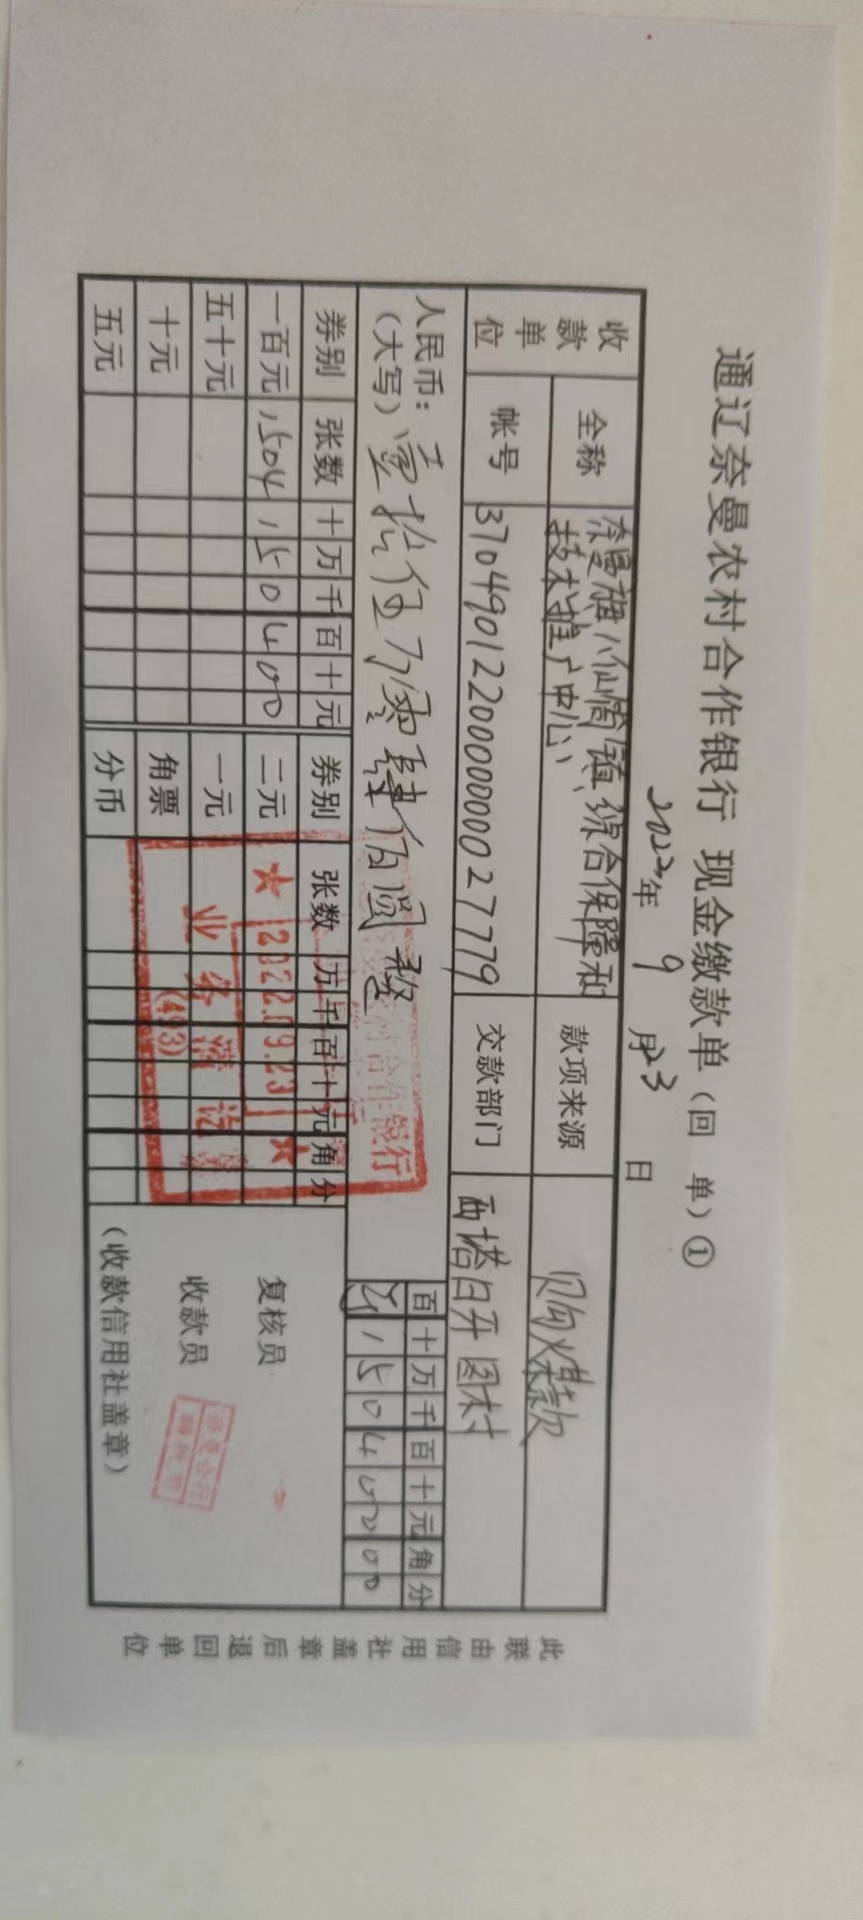 通辽奈曼农村合作银行 现金缴款单(回 单)①
2022年 9 月23 日
收款单位
全称
奈曼旗八仙筒镇综合保障和
技术推广中心
款项来源
购煤款
帐号
3704901220000000027779
交款部门
西塔日牙图村
人民币:
(大写)
壹拾伍万零肆佰圆整
百 十 万 千 百 十 元 角 分
¥ 1 5 0 4 0 0 0 0
券别 张数 十 万 千 百 十 元 券别 张数 万 千 百 十 元 角 分
一百元 1504 1 5 0 4 0 0 二元
五十元 一元
十元 角票
五元 分币
复核员
收款员
(收款信用社盖章)
村合作银行
★ 2022.09.23 ★
业务清讫
(493)
奈曼合行
此联由信用社盖章后退回单位